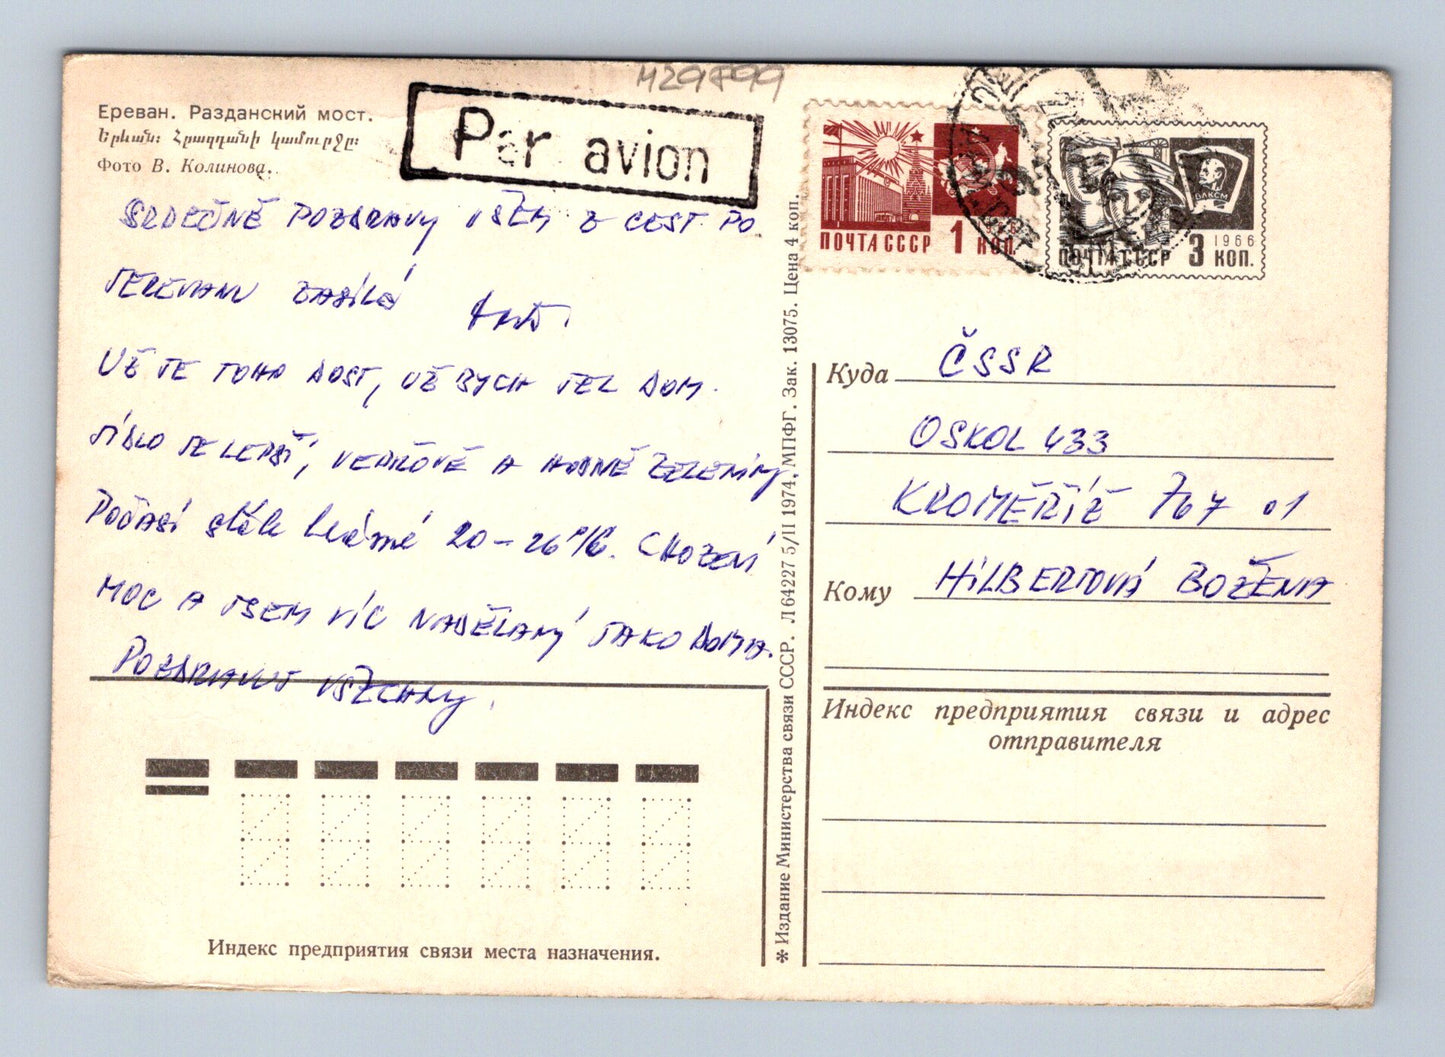 M29899
Ереван. Разданский мост.
Երևան: Հրազդանի կամուրջը:
Фото В. Колинова.
Par avion
SRDEČNÉ POZDRAVY VŠEM Z CEST PO
JEREVANU ZASÍLÁ
UŽ JE TOHO DOST, UŽ BYCH JEL DOM.
JÍDLO JE LEPŠÍ, VEPŘOVÉ A HODNĚ ZELENINY.
POČASÍ stále krásné 20–26°C. CHOZENÍ
MOC A JSEM VÍC NADĚLANÝ JAKO DOMA.
POZDRAVUJ VŠECHNY.
Индекс предприятия связи места назначения.
✻ Издание Министерства связи СССР. Л 64227 5/II 1974, МПФГ. Зак. 13075. Цена 4 коп.
ПОЧТА СССР 1 КОП.
ВЛКСМ
1966
ПОЧТА СССР 3 КОП.
Куда ČSSR
OSKOL 433
KROMĚŘÍŽ 767 01
Кому HILBERTOVÁ BOŽENA
Индекс предприятия связи и адрес
отправителя